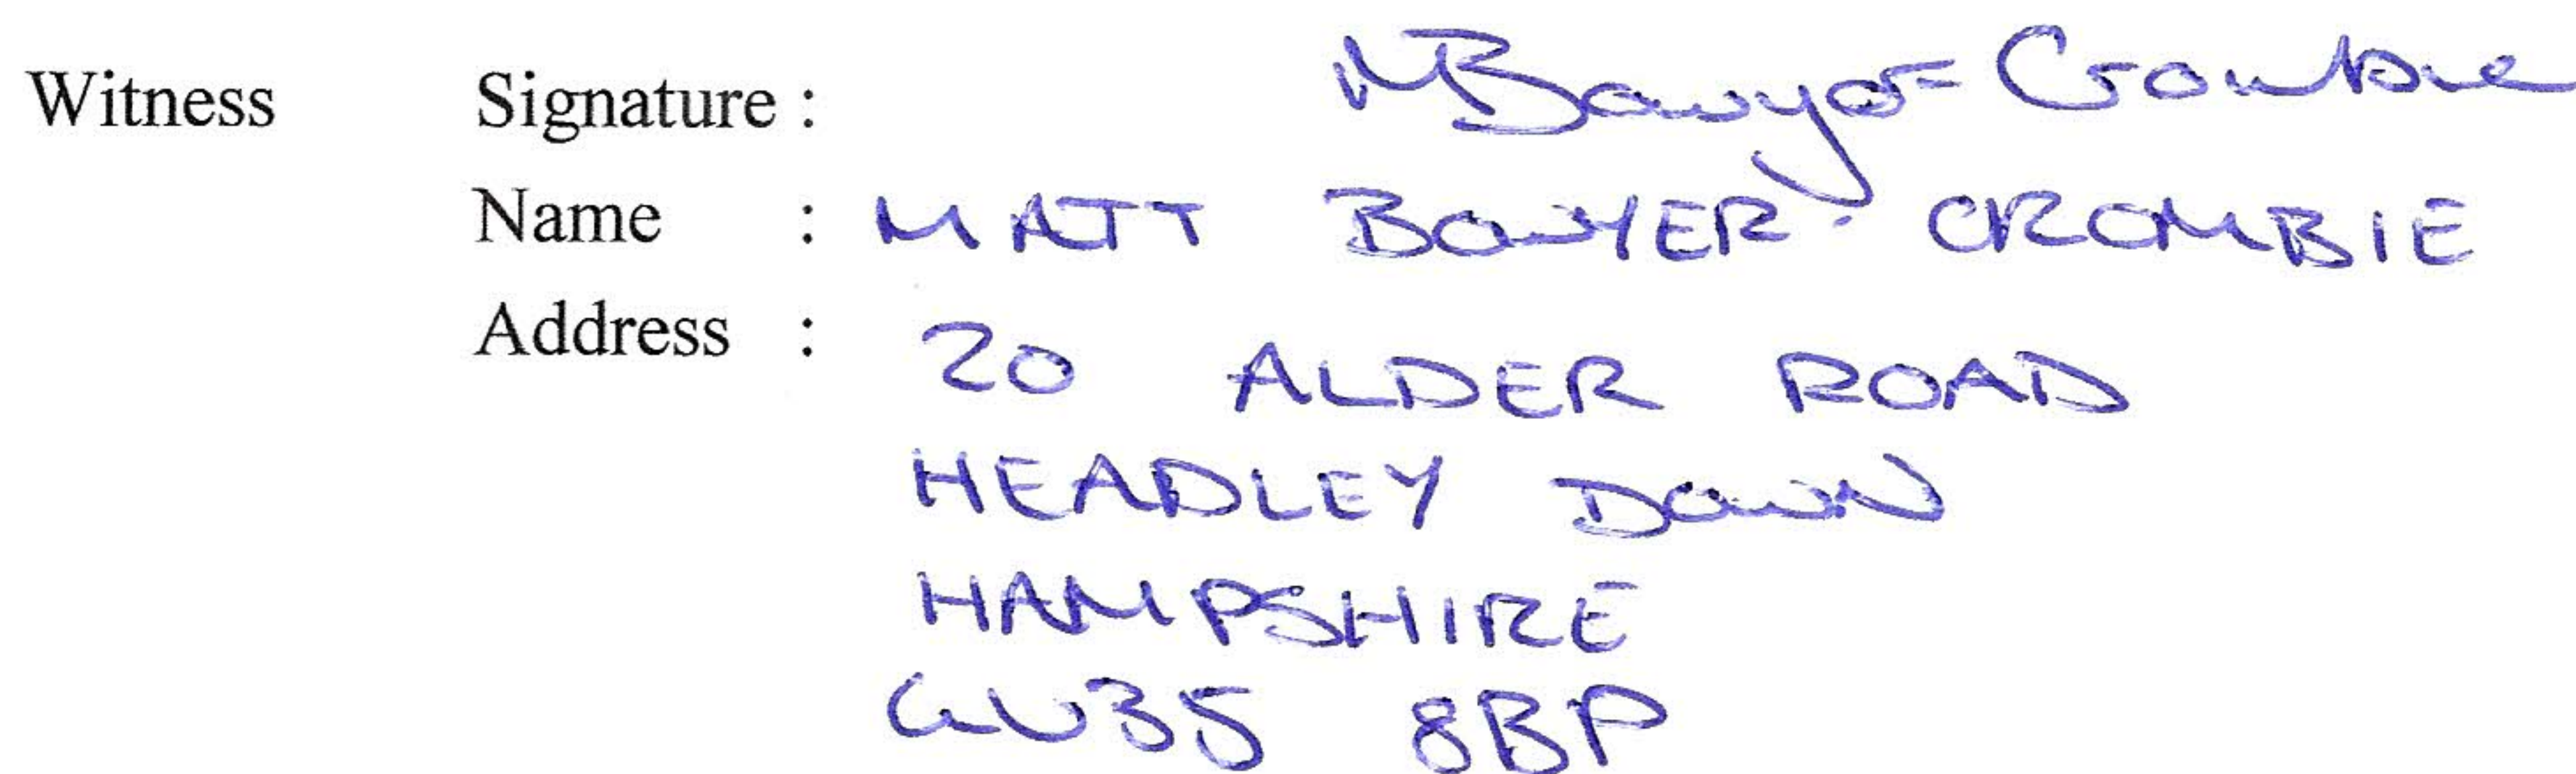 Witness Signature : MBowyer-Crombie
Name : MATT BOWYER-CROMBIE
Address : 20 ALDER ROAD
HEADLEY DOWN
HAMPSHIRE
GU35 8BP